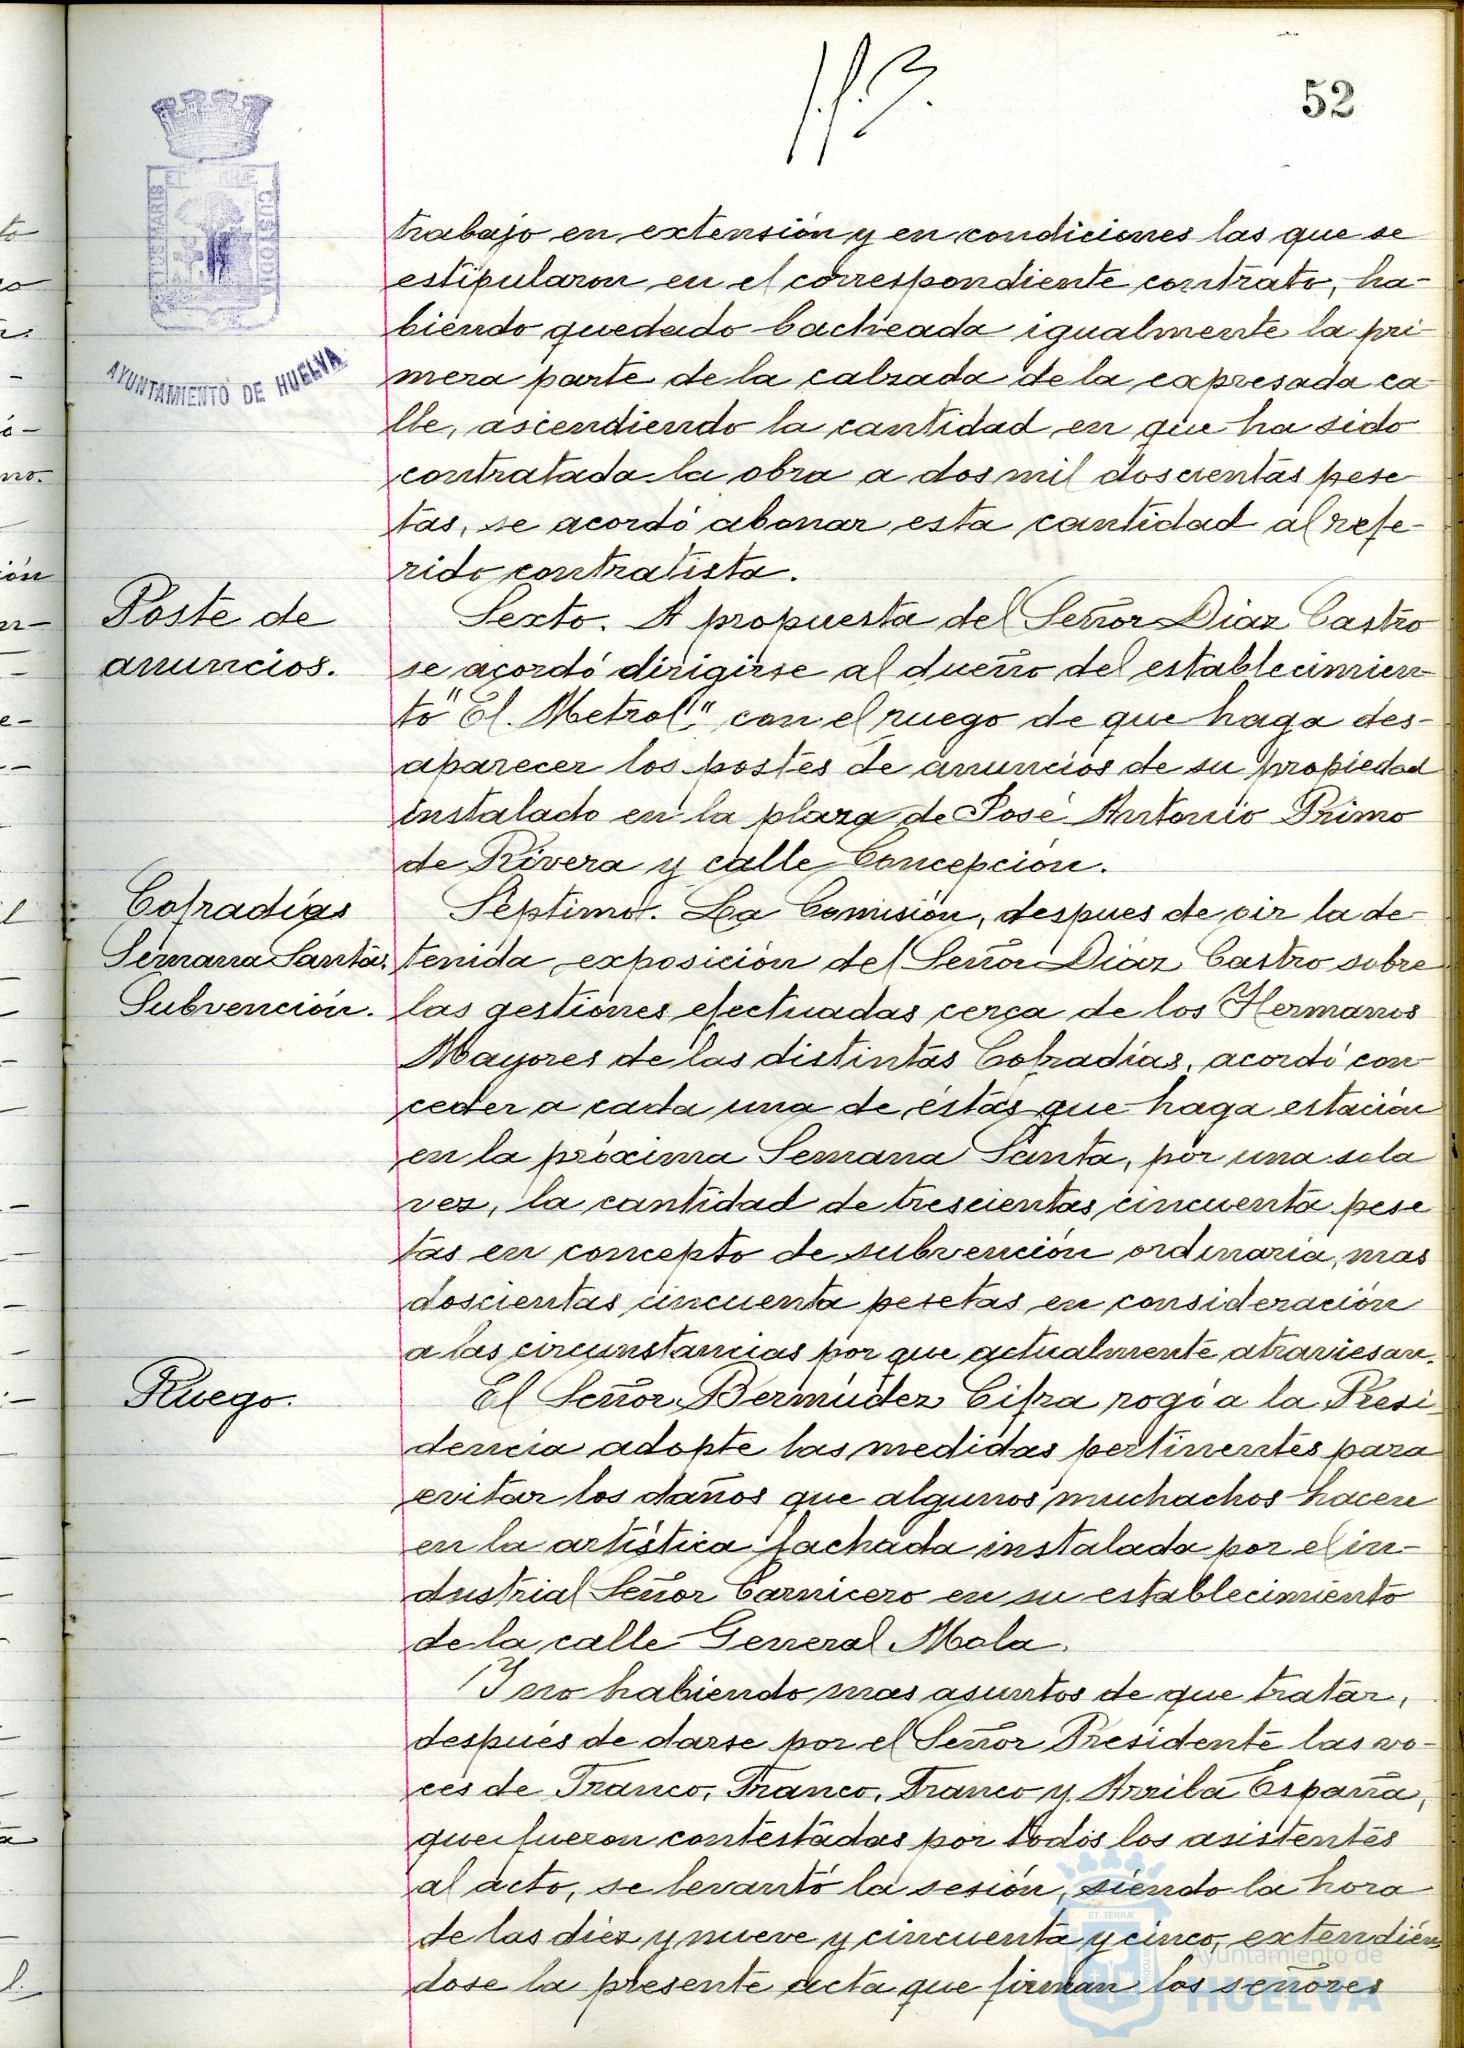 52
AYUNTAMIENTO DE HUELVA
trabajo en extensión y en condiciones las que se
estipularon en el correspondiente contrato, ha-
biendo quedado bacheada igualmente la pri-
mera parte de la calzada de la expresada ca-
lle, ascendiendo la cantidad en que ha sido
contratada la obra a dos mil doscientas pese-
tas, se acordó abonar esta cantidad al refe-
rido contratista.
Poste de
anuncios.
Sexto. A propuesta del Señor Diaz Castro
se acordó dirigirse al dueño del establecimien-
to "El Metrol", con el ruego de que haga des-
aparecer los postes de anuncios de su propiedad
instalado en la plaza de José Antonio Primo
de Rivera y calle Concepción.
Cofradías
Semana Santa.
Subvención.
Séptimo. La Comisión, despues de oir la de-
tenida exposición del Señor Diaz Castro sobre
las gestiones efectuadas cerca de los Hermanos
Mayores de las distintas Cofradías, acordó con-
ceder a cada una de éstas que haga estación
en la próxima Semana Santa, por una sola
vez, la cantidad de trescientas cincuenta pese
tas en concepto de subvención ordinaria, mas
doscientas cincuenta pesetas en consideración
a las circunstancias por que actualmente atraviesan.
Ruego.
El Señor Bermúdez Cifra rogó a la Presi-
dencia adopte las medidas pertinentes para
evitar los daños que algunos muchachos hacen
en la artística fachada instalada por el in-
dustrial Señor Carnicero en su establecimiento
de la calle General Mola.
Y no habiendo mas asuntos de que tratar,
después de darse por el Señor Presidente las vo-
ces de Franco, Franco, Franco y Arriba España,
que fueron contestadas por todos los asistentes
al acto, se levantó la sesión, siendo la hora
de las diez y nueve y cincuenta y cinco, extendién
dose la presente acta que firman los señores
Ayuntamiento de
HUELVA